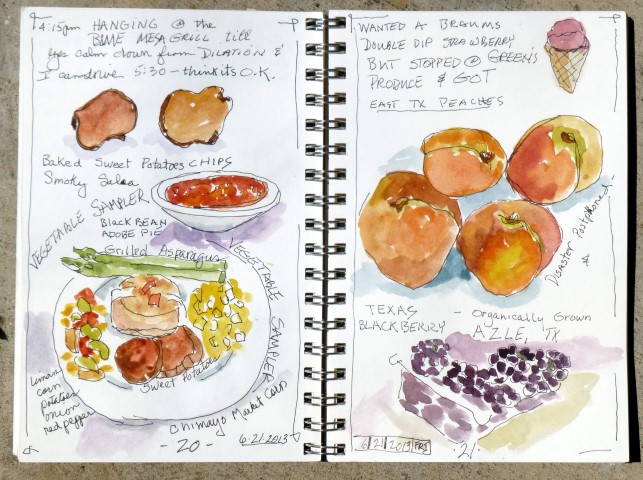 4:15pm HANGING @ the
BLUE MESA GRILL till
eyes calm down from DILATION &
I can drive 5:30 - think its O.K.
Baked Sweet Potatoes CHIPS
Smoky Salsa
VEGETABLE SAMPLER
BLACK BEAN
ADOBE PIE
Grilled Asparagus
VEGETABLE SAMPLER
Sweet Potatoes
Limas
corn
potatoes
onion
red pepper
Chimayo Market Corn
- 20 -
6·21·2013
WANTED A BRAUMS
DOUBLE DIP STRAWBERRY
BUT STOPPED @ GREEN'S
PRODUCE & GOT
EAST TX PEACHES
Disaster Postponed - &
TEXAS
BLACKBERRY
- Organically Grown
AZLE, TX
6/21/2013
·21·